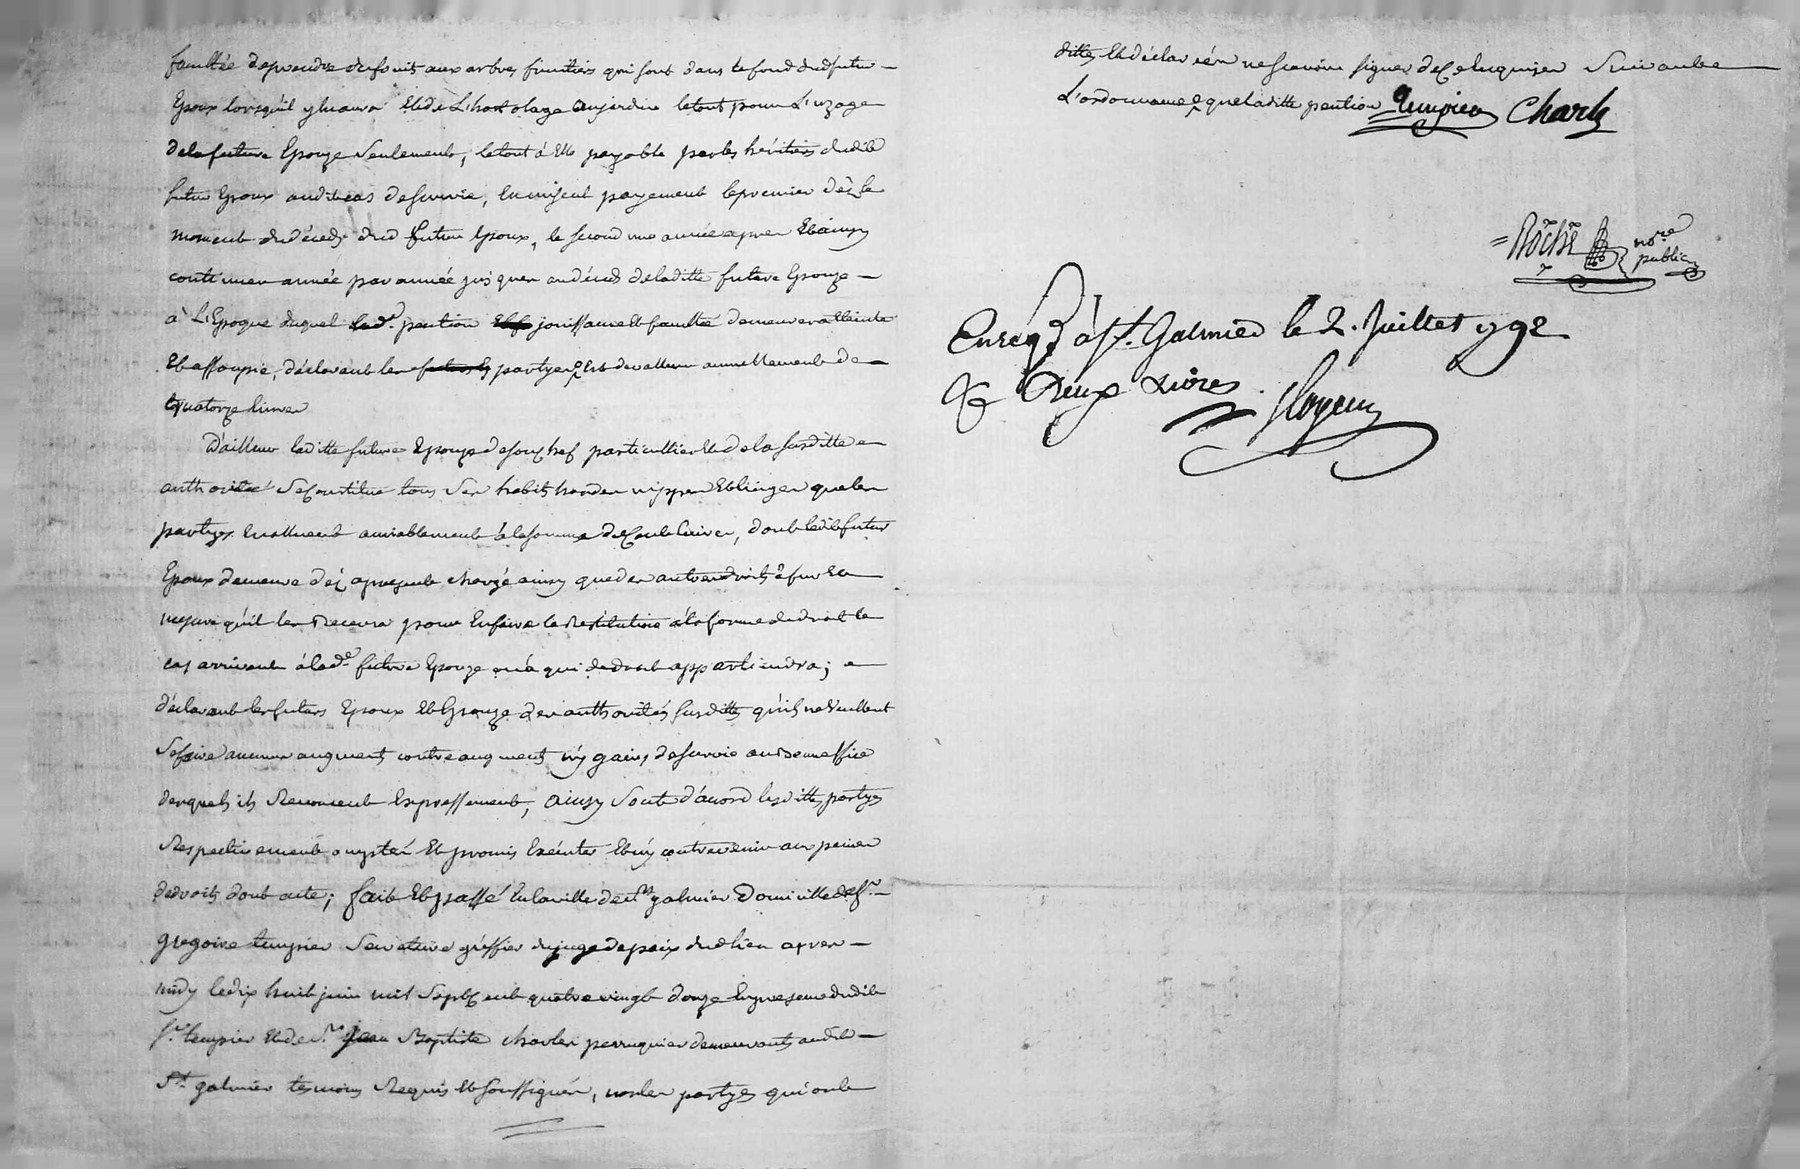 faculté de prendre du fruit aux arbres fruitiers qui sont dans le fond dud futur
Epoux lorsqu'il y en aura et de L'hortolage au jardin le tout pour L'uzage
de la future Epouze seulement, le tout à Elle payable par les héritiers dudit
futur Epoux audit cas de survie, payement le premier dèz le
moment du décedz dud futur Epoux, le second une année apres Et ainsy
continuer année par année jusques au décedz de laditte future Epouze
à L'Epoque duquel lade pention jouissance et faculté demeurera éteinte
Et assoupie, déclarant les partyes Est de valleur annuellement de
quatorze livres
D'ailleur laditte future Epouze de son chef particullier et de la susditte
authorité se Constitue tous ses habits hardes nippes Et linges que les
partyes Evalluent amiablement à la somme de Cent livres, dont ledit futur
Epoux demeure dèz apresent chargé ainsy que des autres droits à fur et a
mezure qu'il les Recevra pour En faire la Restitution à la forme de droit le
cas arrivant à lade future Epouze ou à qui de droit appartiendra;
déclarant les futurs Epoux Et Epouze des authorités susdittes qu'ils ne veullent
se faire aucun augment contre augment ny gains de survie au Benneffice
desquels ils Renoncent Expressement, ainsy sont d'acord lesdittes partyes
Respectivement acceptés Et promis Exécuter Et n'y contrevenir aux peines
de droits dont acte; fait Et passé En la ville de St galmier Domicille de sr
gregoire tempier secretaire gréffier du juge de paix dud lieu apres
midy le dix huit juin mil sept Cent quatre vingt douze En presence dudit
sr tempier Et de sr jean Baptiste charles perruquier demeurants audit
St galmier temoins Requis Et soussignés, non les partyes qui ont
dittes Et déclaré ne scavoir signer de Ce Enquizes suivant
L'ordonnance que laditte pention Tempier Charles
Roche nore
public
Enrég à St. Galmier le 2. Juillet 1792
R deux Livres.